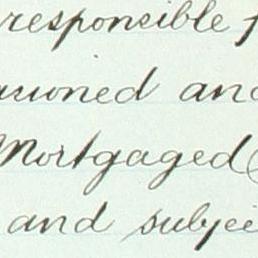 responsible
and
Mortgaged
and subjec